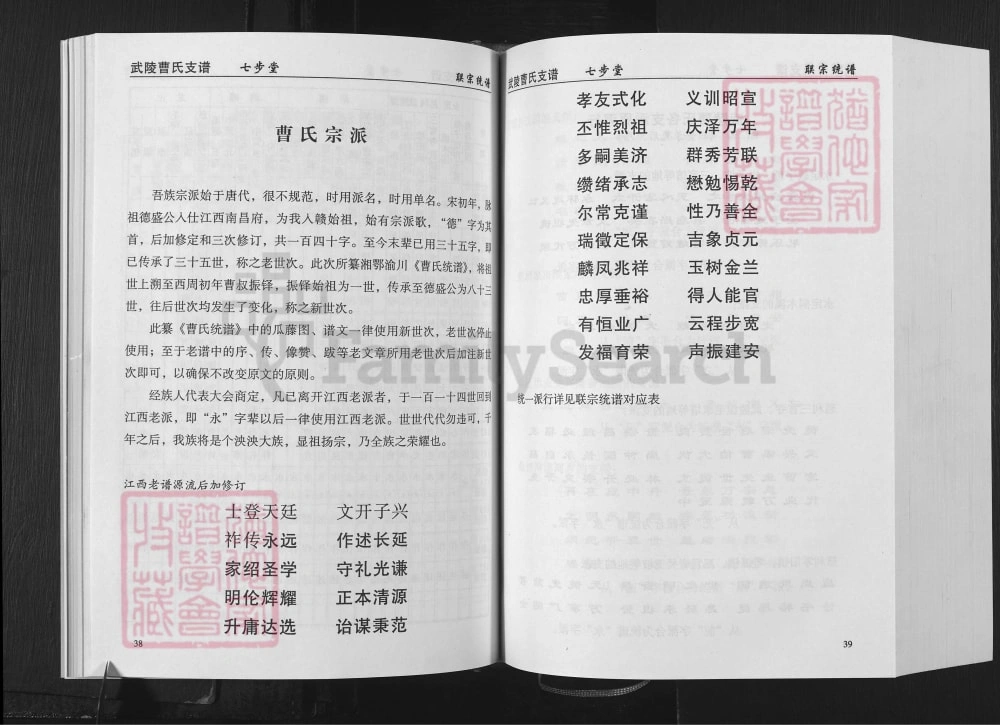 武陵曹氏支谱 七步堂
联宗统谱
曹氏宗派
吾族宗派始于唐代，很不规范，时用派名，时用单名。宋初年，脉
祖德盛公人仕江西南昌府，为我人赣始祖，始有宗派歌，“德”字为其
首，后加修定和三次修订，共一百四十字。至今末辈已用三十五字，即
已传承了三十五世，称之老世次。此次所纂湘鄂渝川《曹氏统谱》，将祖
世上溯至西周初年曹叔振铎，振铎始祖为一世，传承至德盛公为八十三
世，往后世次均发生了变化，称之新世次。
此纂《曹氏统谱》中的瓜藤图、谱文一律使用新世次，老世次停止
使用；至于老谱中的序、传、像赞、跋等老文章所用老世次后加注新世
次即可，以确保不改变原文的原则。
经族人代表大会商定，凡已离开江西老派者，于一百一十四世回到
江西老派，即“永”字辈以后一律使用江西老派。世世代代勿违可，千
年之后，我族将是个泱泱大族，显祖扬宗，乃全族之荣耀也。
江西老谱源流后加修订
士登天廷 文开子兴
祚传永远 作述长延
家绍圣学 守礼光谦
明伦辉耀 正本清源
升庸达选 诒谋秉范
38
武陵曹氏支谱 七步堂
联宗统谱
孝友式化 义训昭宣
丕惟烈祖 庆泽万年
多嗣美济 群秀芳联
缵绪承志 懋勉惕乾
尔常克谨 性乃善全
瑞徵定保 吉象贞元
麟凤兆祥 玉树金兰
忠厚垂裕 得人能官
有恒业广 云程步宽
发福育荣 声振建安
统一派行详见联宗统谱对应表
39
FamilySearch